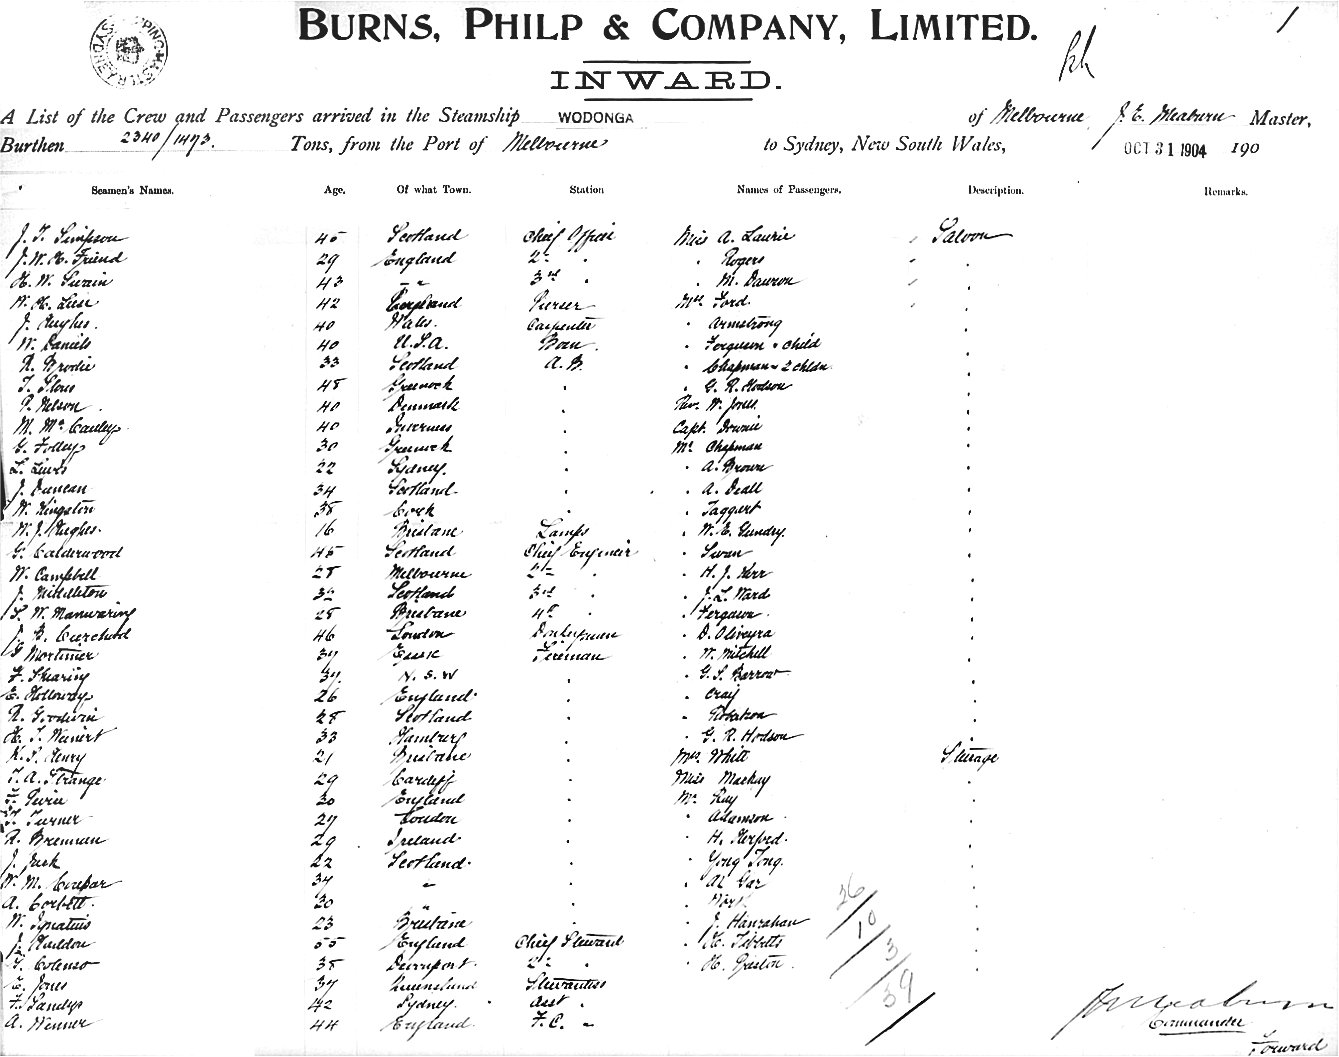 1
BURNS, PHILP & COMPANY, LIMITED.
INWARD.
A List of the Crew and Passengers arrived in the Steamship WODONGA of Melbourne J. E. Meaburn Master,
Burthen 2340/1473. Tons, from the Port of Melbourne to Sydney, New South Wales, OCT 31 1904 190
Seamen's Names. Age. Of what Town. Station Names of Passengers. Description. Remarks.
J. T. Simpson 45 Scotland Chief Officer Miss A. Laurie Saloon
J. W. H. Friend 29 England 2nd " " Rogers "
H. W. Swain 43 " " 3rd " " M. Dawson "
W. H. 42 England Purser Mrs Ford "
J. Hughes. 40 Wales. Carpenter " Armstrong "
W. Daniels 40 U.S.A. Bosn. " Ferguson & child "
R. Brodie 33 Scotland A.B. " Chapman & 2 childn "
T. 48 Greenock " " G. R. Hodson "
P. Nelson. 40 Denmark " Rev. W. Jones. "
M. McCauley 40 Inverness " Capt. Downie "
G. Folley 30 Greenock " Mr Chapman "
L. Lewis 22 Sydney. " " A. Brown "
J. Duncan 34 Scotland. " " A. Deall "
W. Kingston 38 Cork " " Taggart "
W. J. Hughes. 16 Brisbane Lamps " W. E. Gundry. "
G. Calderwood 45 Scotland Chief Engineer " Swan "
W. Campbell 28 Melbourne 2nd " " H. J. Kerr "
J. Middleton 32 Scotland 3rd " " J. L. Ward "
S. W. Manwaring 28 Brisbane 4th " " Ferguson. "
J. B. 46 London Donkeyman " D. Oliveyra "
G Mortimer 37 Essex Fireman " W. Mitchell "
F. Shearing 37. N.S.W " " G. S. Barrow "
E. Holloway 26 England. " " Craig "
R. Goodwin 28 Scotland " " Robertson "
H. T. Weinert 33 Hamburg " " G. R. Hodson "
K. S. Henry 21 Brisbane " Mrs White Steerage
T. A. Strange 29 Cardiff " Miss Mackay "
30 England " Mr Kay "
T. Turner 27 London " " Adamson. "
R. Brennan 29 Ireland " " H. Herford. "
J. Jack 22 Scotland. " " Yong Tong. "
W. M. Coupar 34 " " " Ah Gar "
A. Corbett 30 " " " "
W. Ignatius 23 Brisbane " " J. Hanrahan "
J. 55 England Chief Steward " H. Tibbetts "
T. Colenso 38 Devonport. 2nd " " H. Groston. "
E. Jones 37 Queensland Stewardess
F. Sandys 42 Sydney. Asst "
A. Wenner 44 England. F.C. "
26/10/3/39
J E Meaburn
Commander
Forward